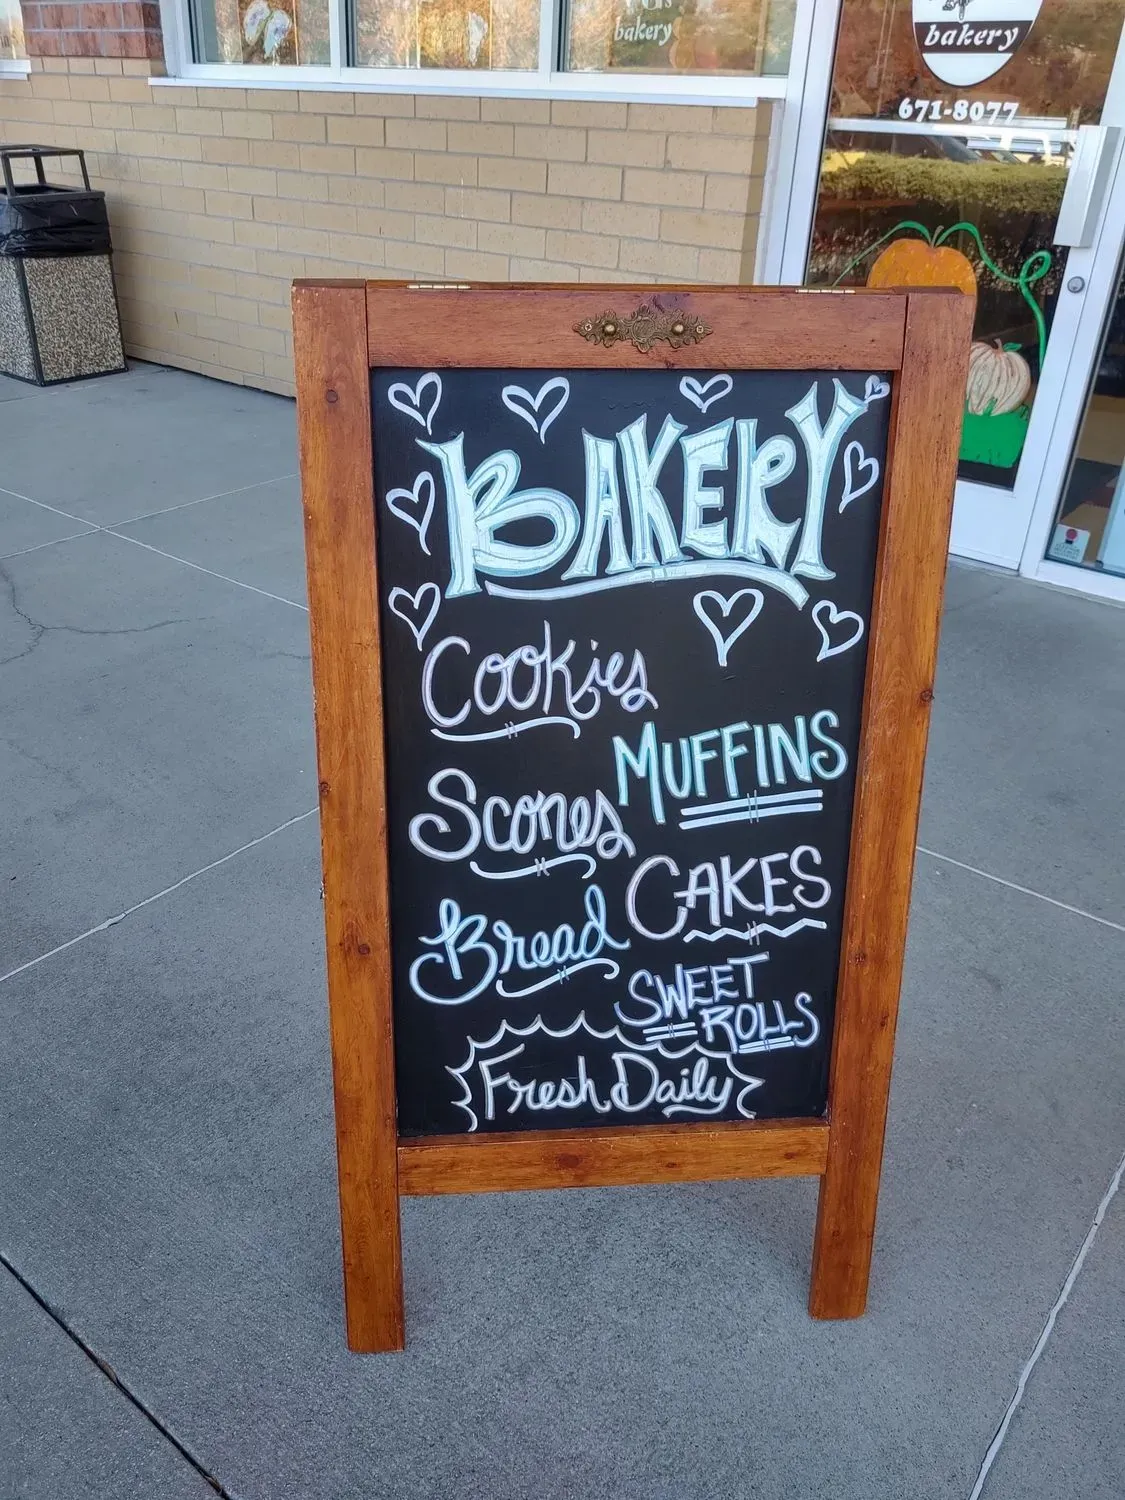 bakery
bakery
671-8077
BAKERY
Cookies
MUFFINS
Scones
CAKES
Bread
SWEET
ROLLS
Fresh Daily